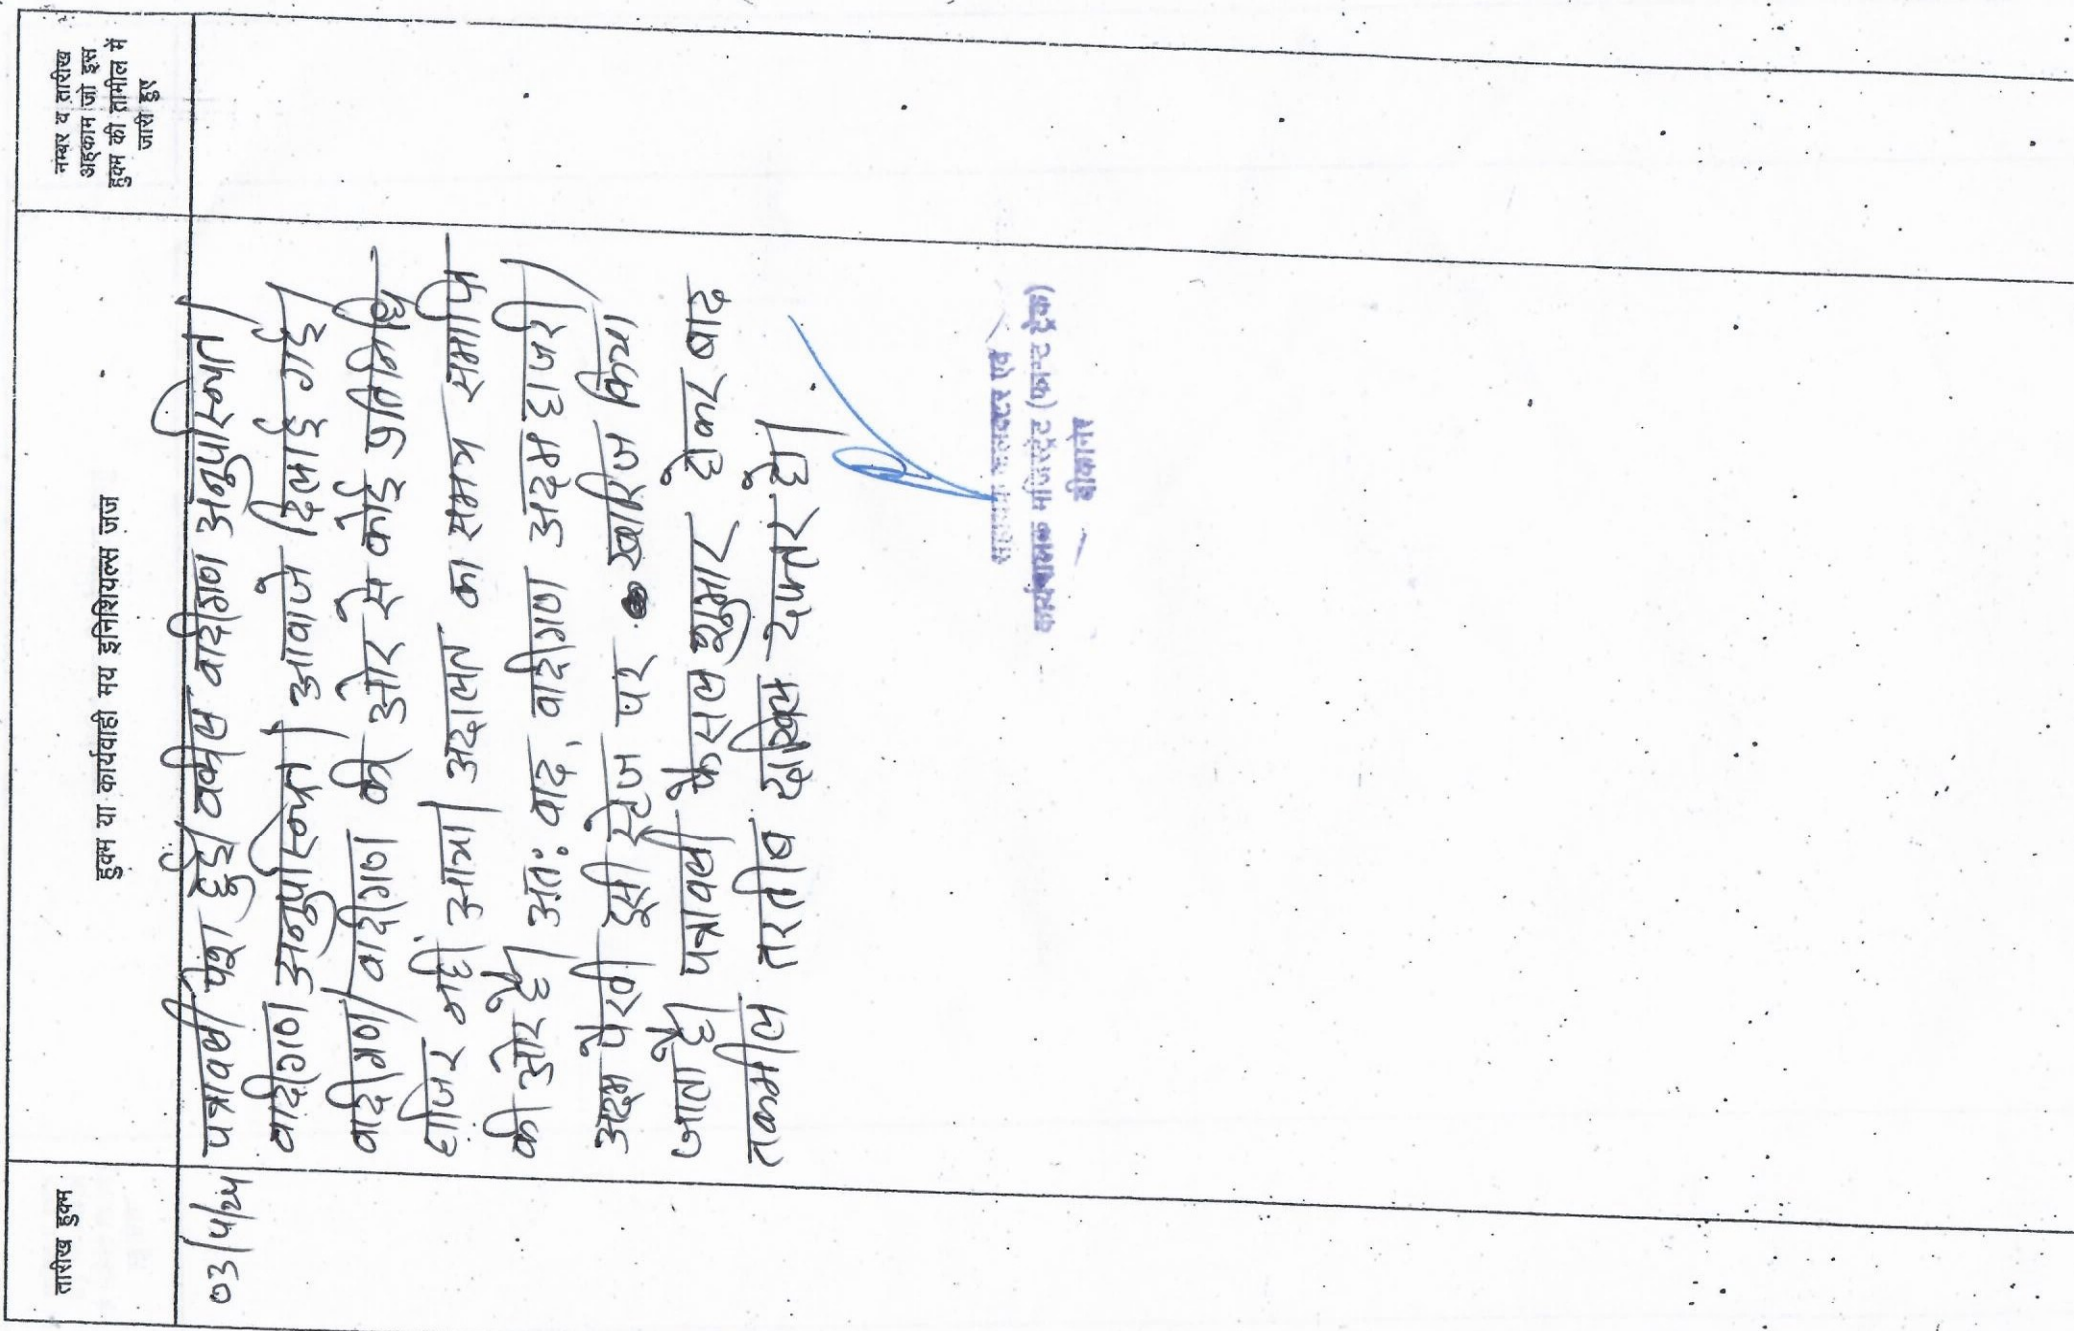 तारीख हुक्म
हुक्म या कार्यवाही मय इनिशियल्स जज
नम्बर व तारीख
अहकाम जो इस
हुक्म की तामील में
जारी हुए
03/4/24
पत्रावली पेश हुई। वकील वादीगण अनुपस्थित।
वादीगण अनुपस्थित। आवाजे दिलाई गई
वादीगण/वादीगण की ओर से कोई प्रतिनिधि
हाजिर नहीं आया। अदालत का समय समाप्ति
की ओर है। अतः वाद वादीगण अदम हाजरी/
अदम पैरवी इसी स्टेज पर खारिज किया
जाता है। पत्रावली फैसल शुमार होकर बाद
तकमील तरतीब दाखिल दफ्तर हो।